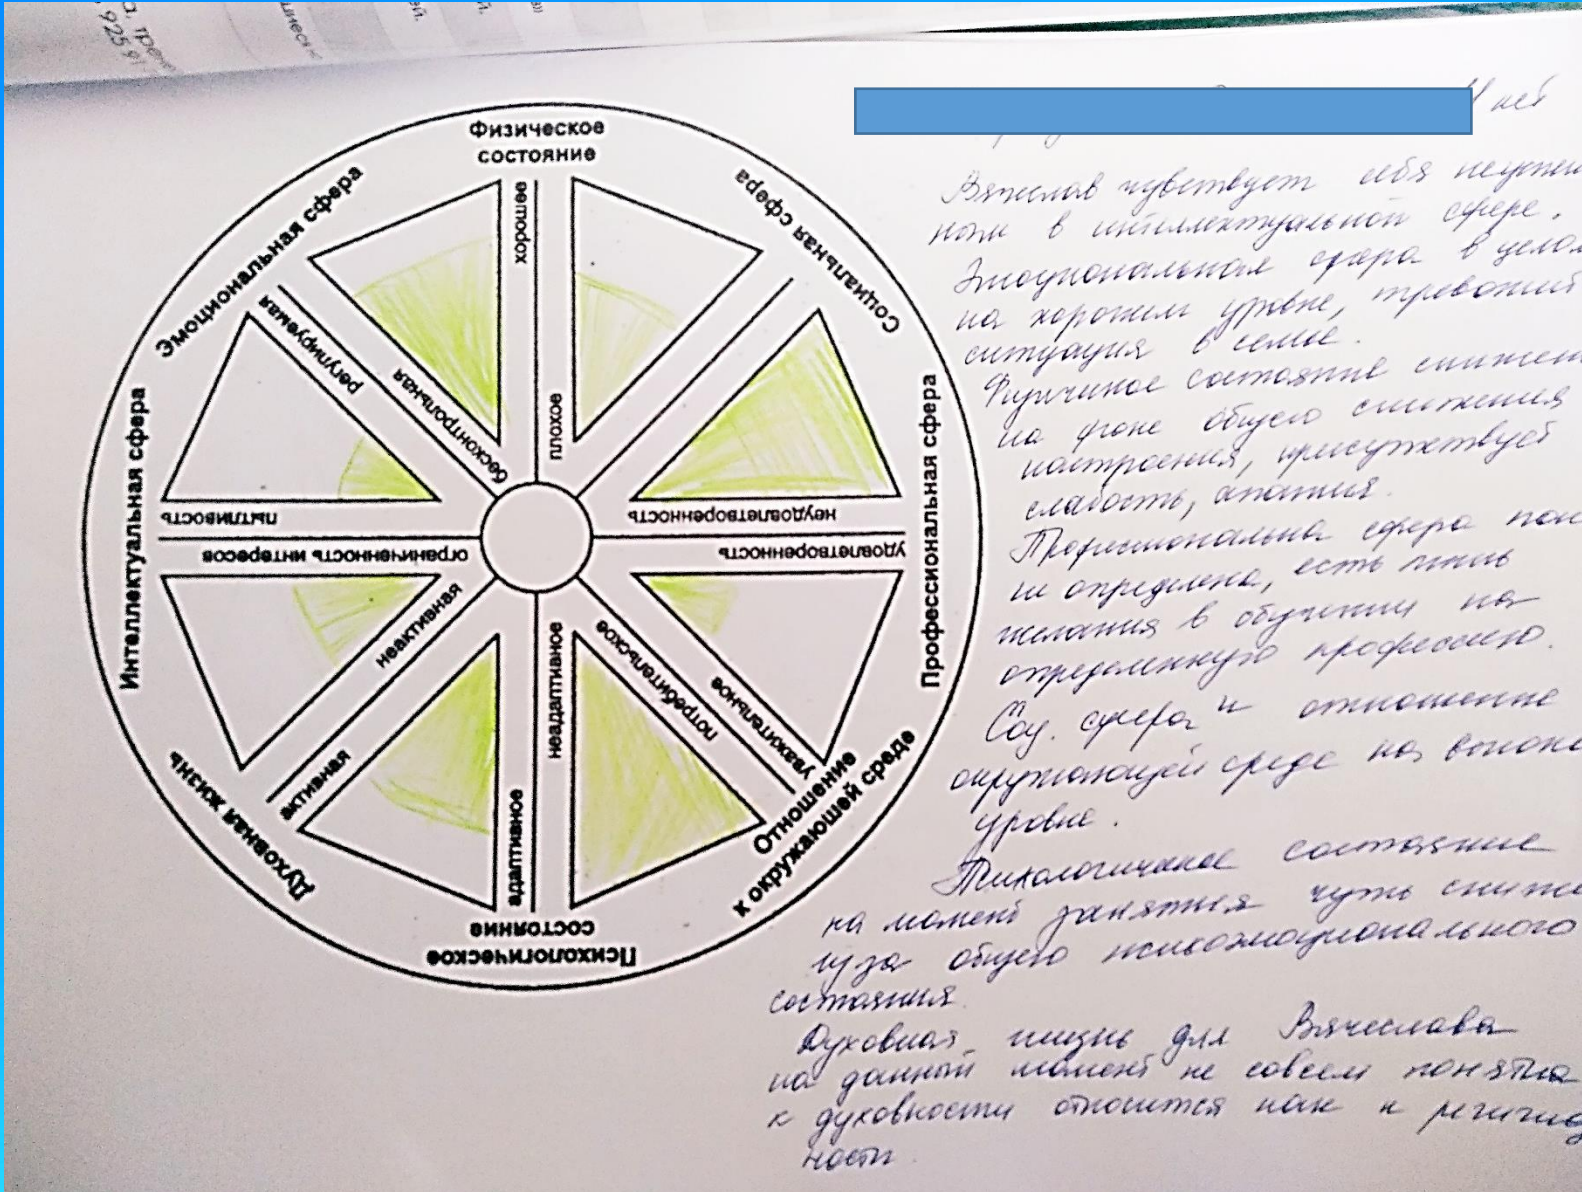 925 9
Физическое
состояние
Социальная сфера
Профессиональная сфера
Отношение
к окружающей среде
Психологическое
состояние
Духовная жизнь
Интеллектуальная сфера
Эмоциональная сфера
хорошее
плохое
неудовлетворенность
удовлетворенность
уважительное
потребительское
неадаптивное
адаптивное
активная
неактивная
ограниченность интересов
пытливость
регулируемая
бесконтрольная
лет
Вячеслав чувствует себя
в интеллектуальной сфере.
Эмоциональная сфера в целом
на хорошем уровне, тревожит
ситуация в семье.
Физичиское состояние снижен
на фоне общего снижения
настроения, присутствует
слабость, апатия.
Профессиональна сфера пок
не определена, есть лишь
желания в обучении на
определенную профессию.
Соц. сфера и отношение
окружающей среде на высоко
уровне.
Психологическое состояние
на момент занятия чуть сниже
из за общего психоэмоционального
состояния.
Духовная жизнь для Вячеслава
на данный момент не совсем понятна
к духовности относится как к религиоз
ности.